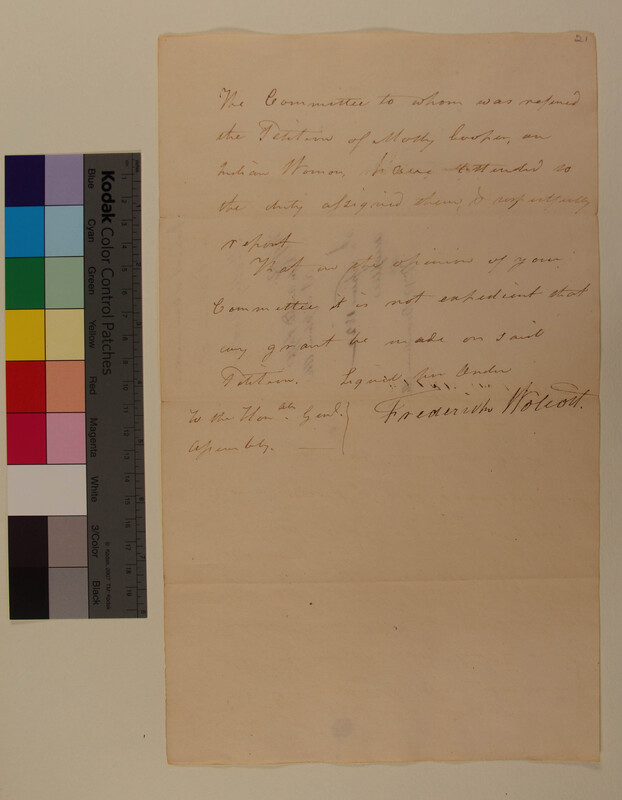 21
The Committee to whom was refered
the Petition of Molly Cooper, an
Indian Woman, having attended to
the duty assigned them, & respectfully
report
That in the opinion of your
Committee it is not expedient that
any grant be made on said
Petition. Signed per Order
Frederick Wolcott.
To the Honble. Genl.
Assembly.
Kodak Color Control Patches
Blue
Cyan
Green
Yellow
Red
Magenta
White
3/Color
Black